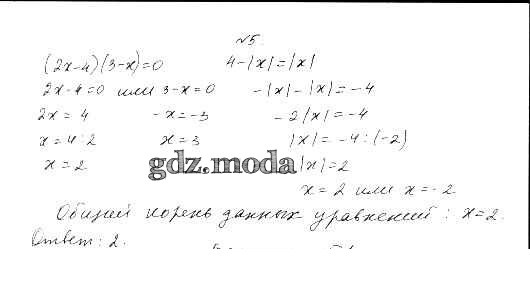 №5.
(2x-4)(3-x)=0 4-|x|=|x|
2x-4=0 или 3-x=0 -|x|-|x|=-4
2x=4 -x=-3 -2|x|=-4
x=4:2 x=3 |x|=-4:(-2)
x=2 gdz.moda |x|=2
x=2 или x=-2
Общий корень данных уравнений: x=2.
Ответ: 2.